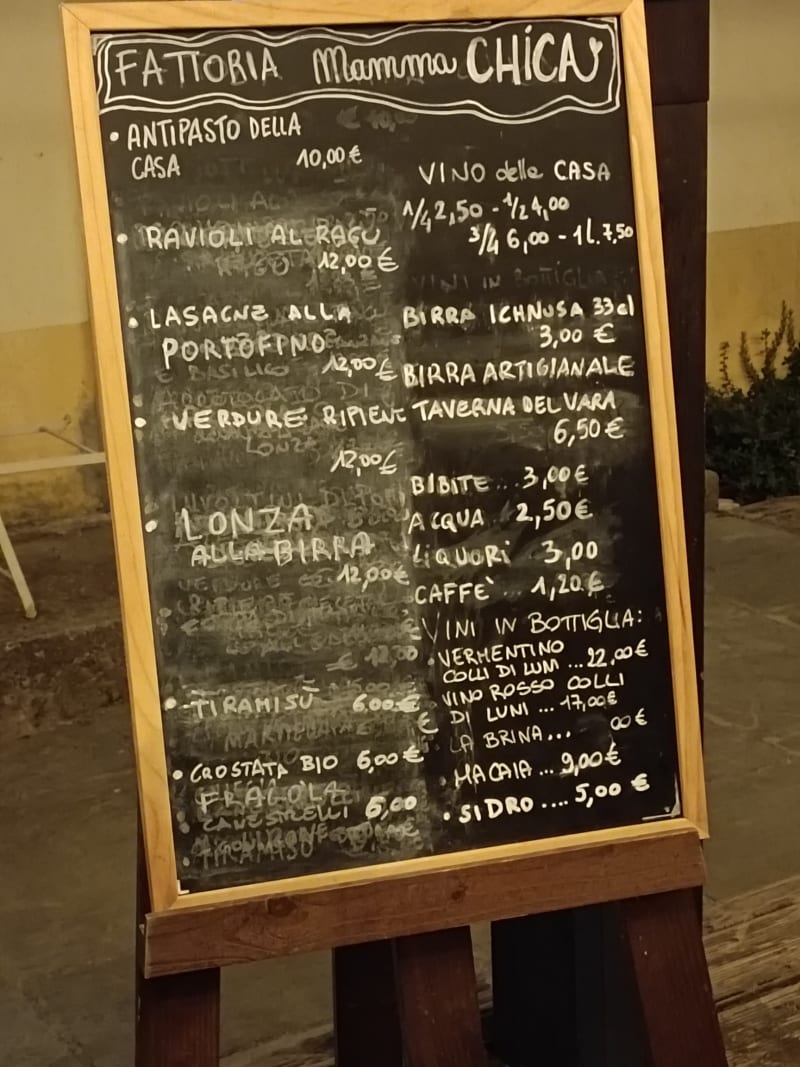 FATTORIA Mamma CHICA
• ANTIPASTO DELLA
CASA 10,00€
• RAVIOLI AL RAGÙ
12,00€
• LASAGNE ALLA
PORTOFINO
12,00€
• VERDURE RIPIENE
12,00€
• LONZA
ALLA BIRRA
12,00€
• TIRAMISÙ 6,00€
• CROSTATA BIO 6,00€
FRAGOLA
• CANESTRELLI 6,00
• TIRAMISÙ
VINO della CASA
1/4 2,50 - 1/2 4,00
3/4 6,00 - 1l. 7,50
VINI IN BOTTIGLIA
BIRRA ICHNUSA 33cl
3,00 €
BIRRA ARTIGIANALE
TAVERNA DEL VARA
6,50€
BIBITE... 3,00€
ACQUA... 2,50€
LIQUORI. 3,00
CAFFÈ... 1,20€
VINI IN BOTTIGLIA:
• VERMENTINO
COLLI DI LUNI ...22,00€
• VINO ROSSO COLLI
DI LUNI ... 17,00€
LA BRINA... 00€
• MACAIA ... 9,00€
• SIDRO .... 5,00 €